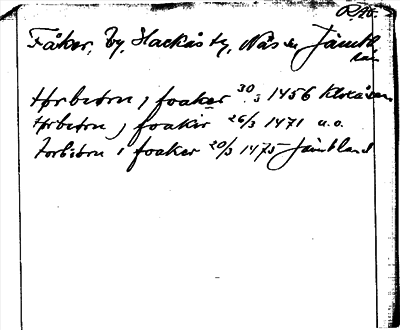 Fåker, by, Hackås sn, Näs hd Jämtl.
Torbiörn j foaker 30/3 1456 Klokåsen
Torbiörn j foakir 26/3 1471 u.o.
Torbiörn i foaker 20/3 1475 Jämtland